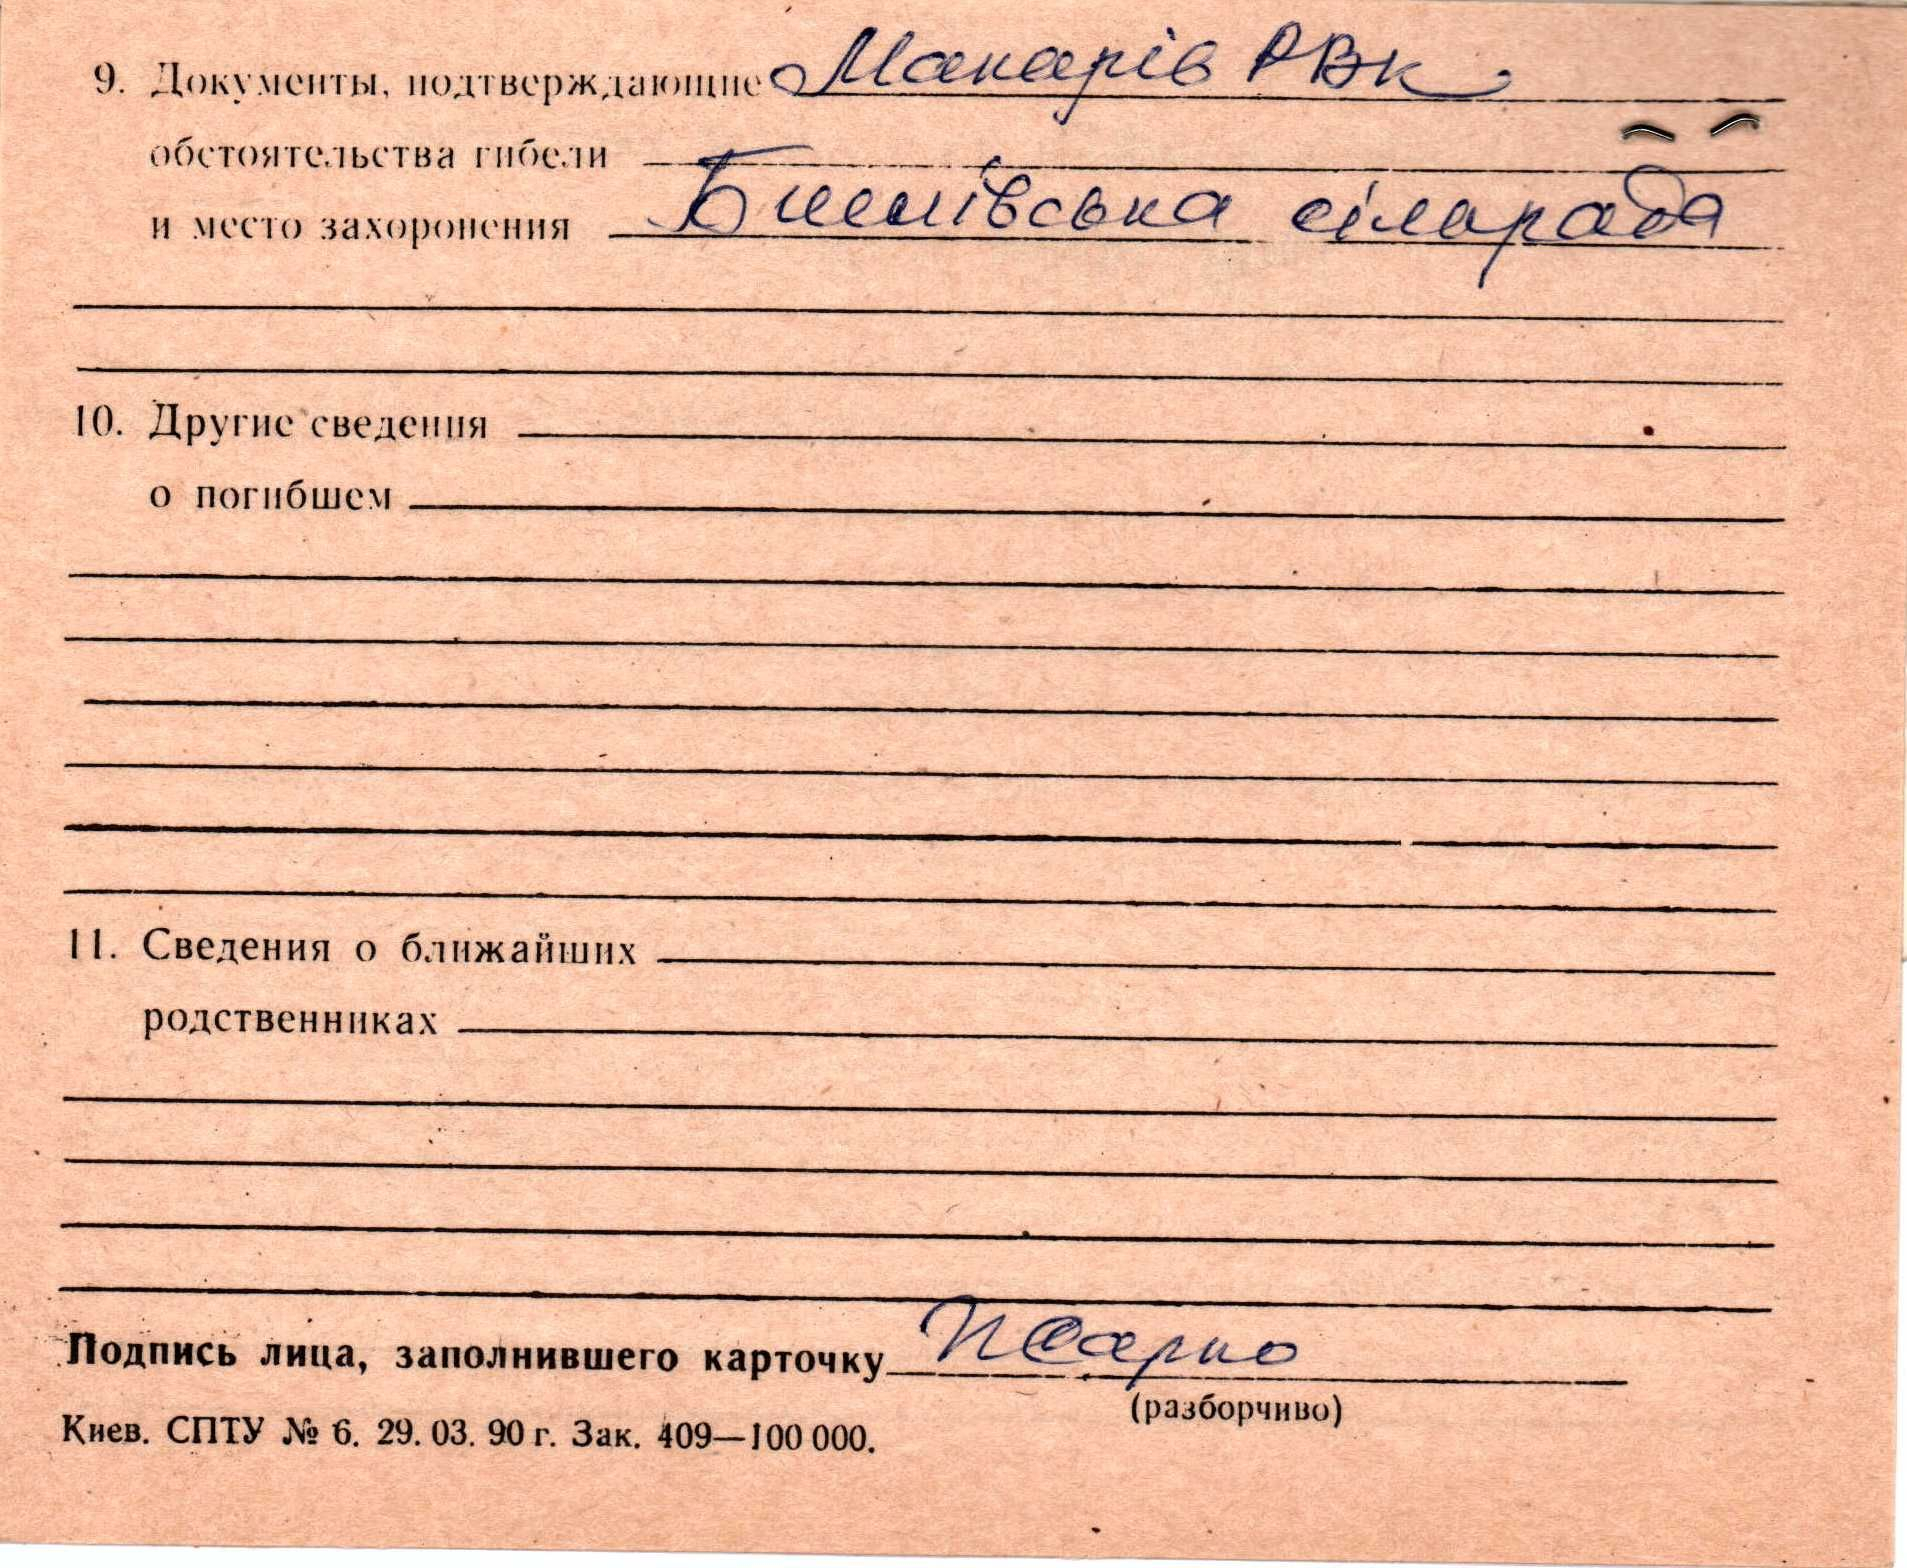 9. Документы, подтверждающие Макарів РВК
обстоятельства гибели
и место захоронения Бишівська сілрада
10. Другие сведения
о погибшем
11. Сведения о ближайших
родственниках
Подпись лица, заполнившего карточку
(разборчиво)
Киев. СПТУ № 6. 29.03.90 г. Зак. 409—100 000.